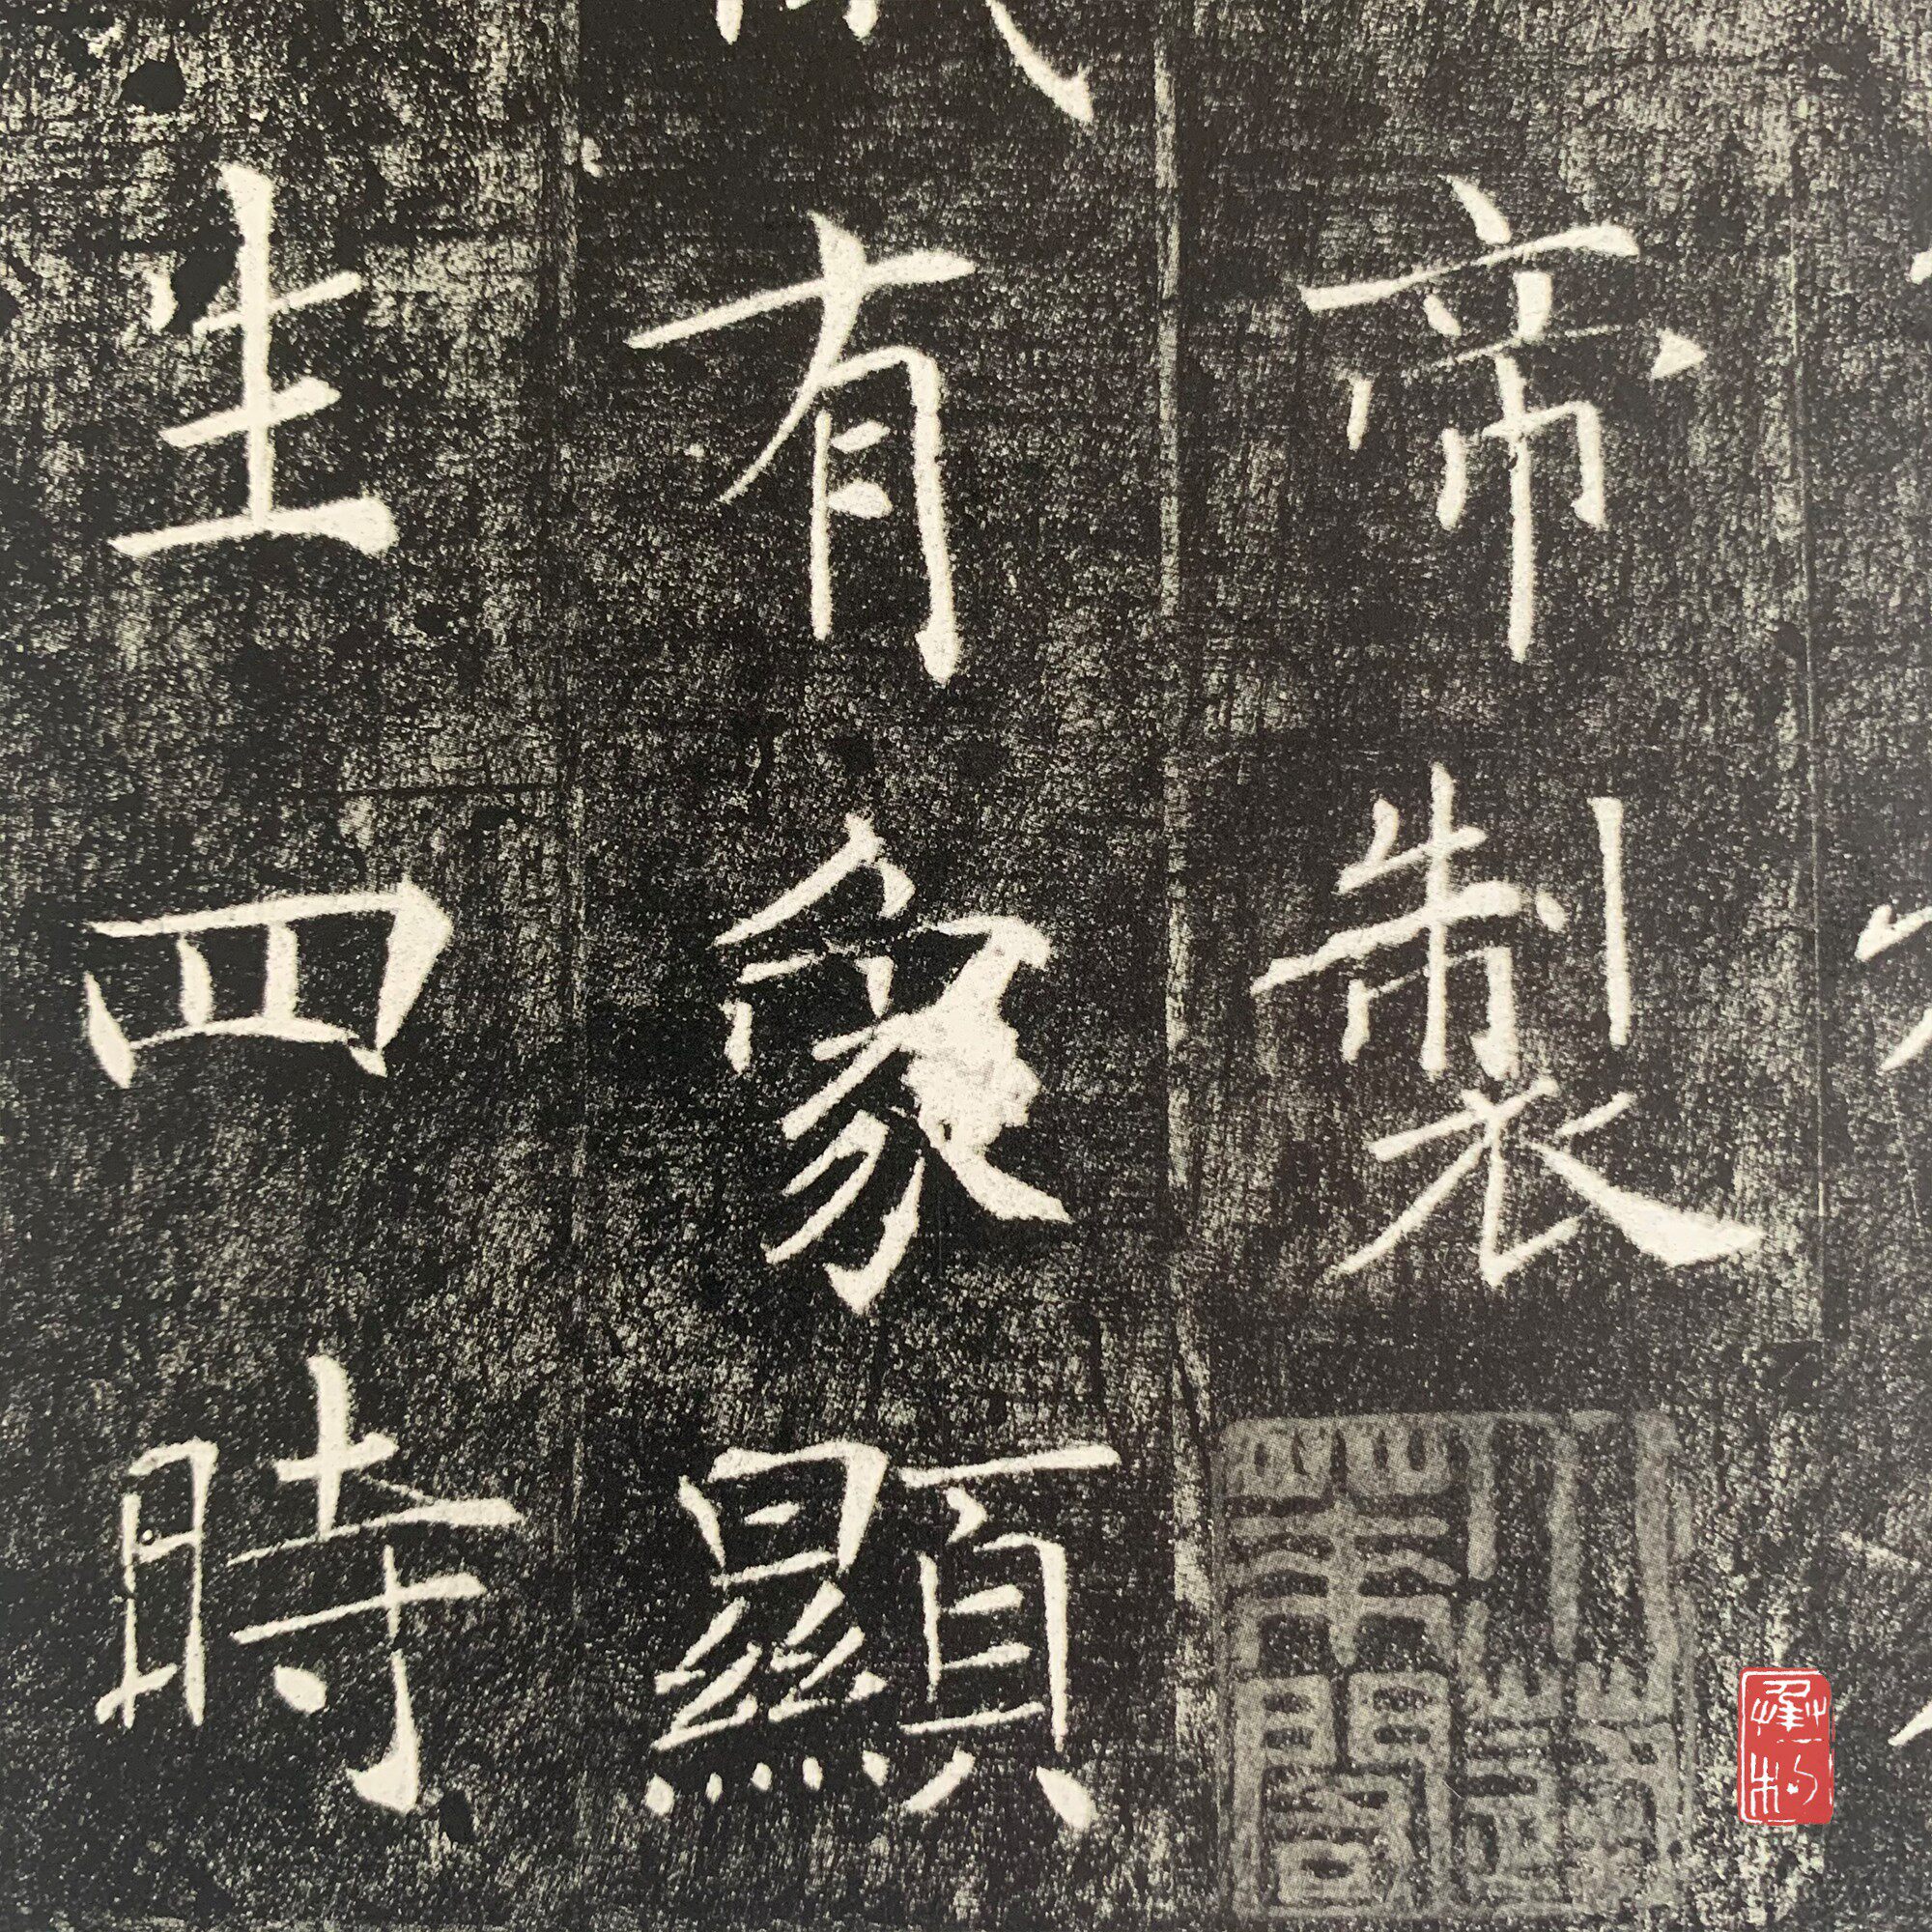 帝製
有象顯
生四時